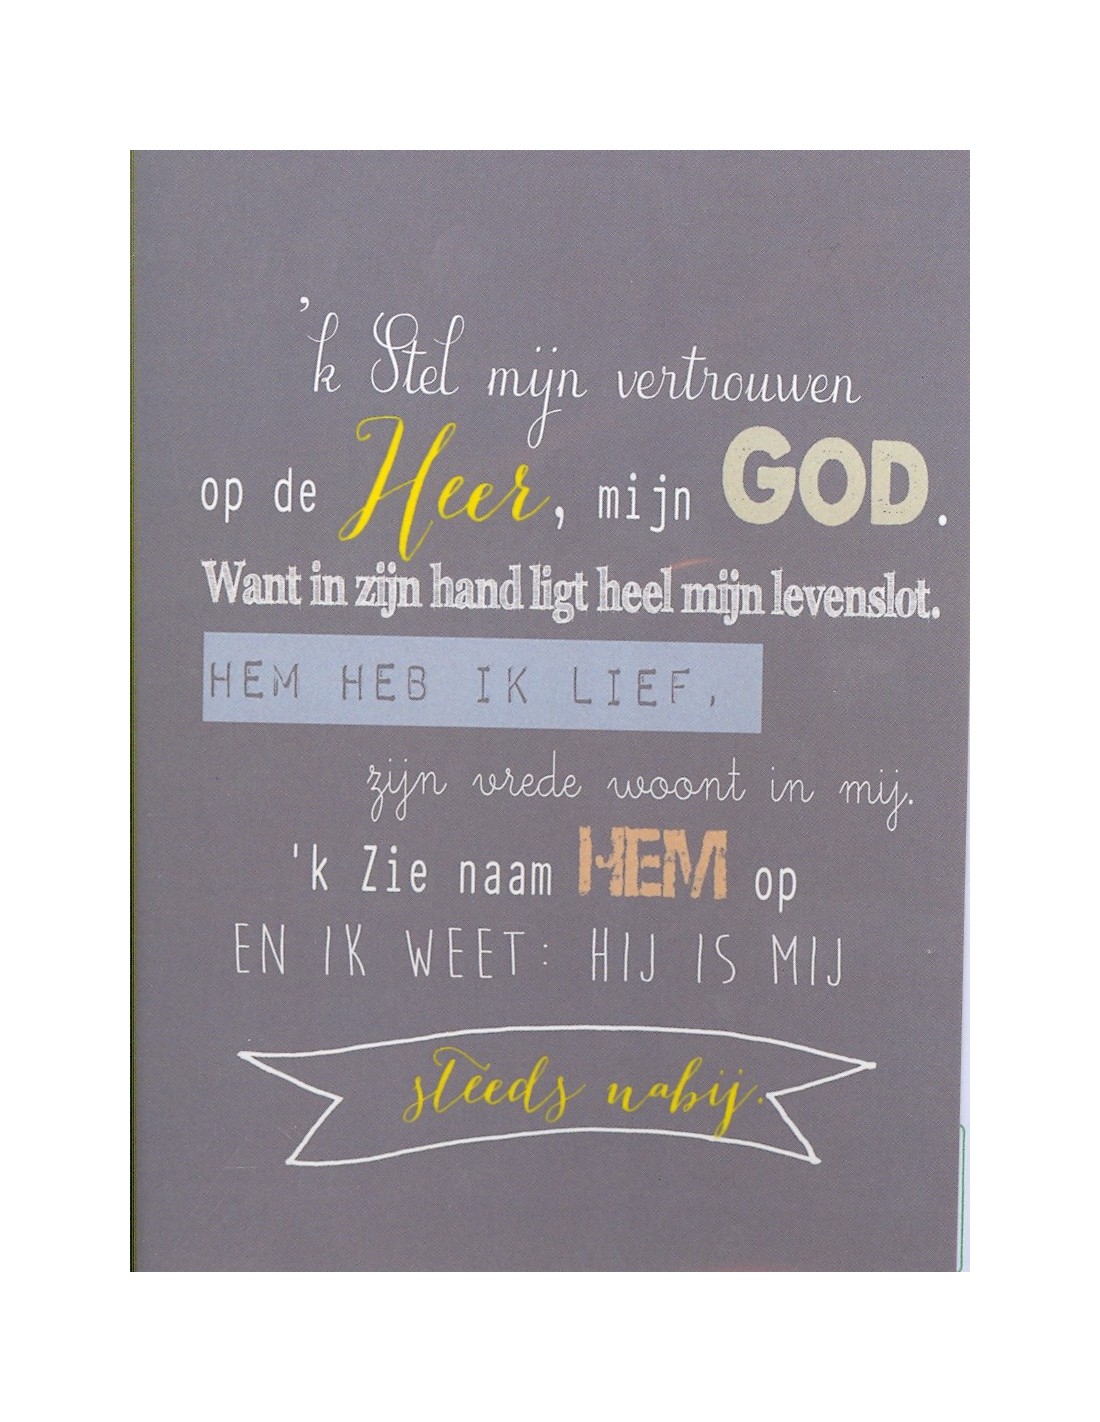 'k Stel mijn vertrouwen
op de Heer, mijn GOD.
Want in zijn hand ligt heel mijn levenslot.
HEM HEB IK LIEF,
zijn vrede woont in mij.
'k Zie naam HEM op
EN IK WEET: HIJ IS MIJ
steeds nabij.